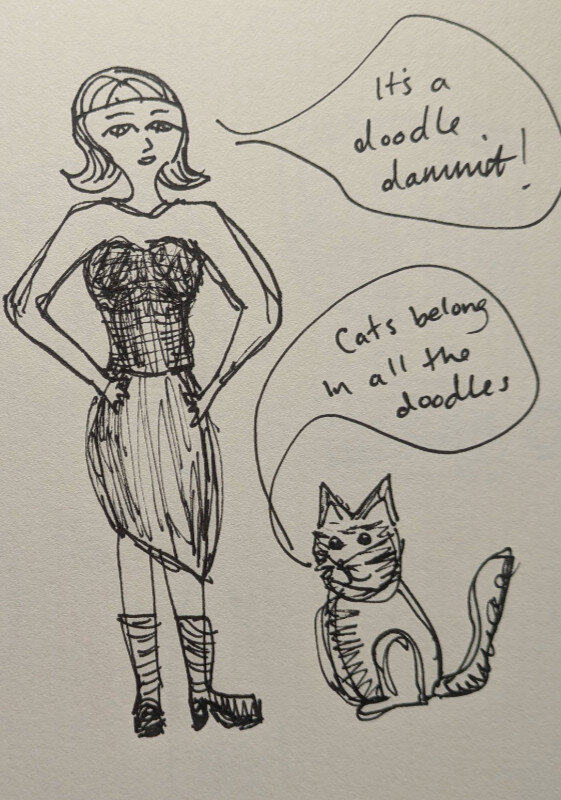 It's a
doodle
dammit!
Cats belong
in all the
doodles